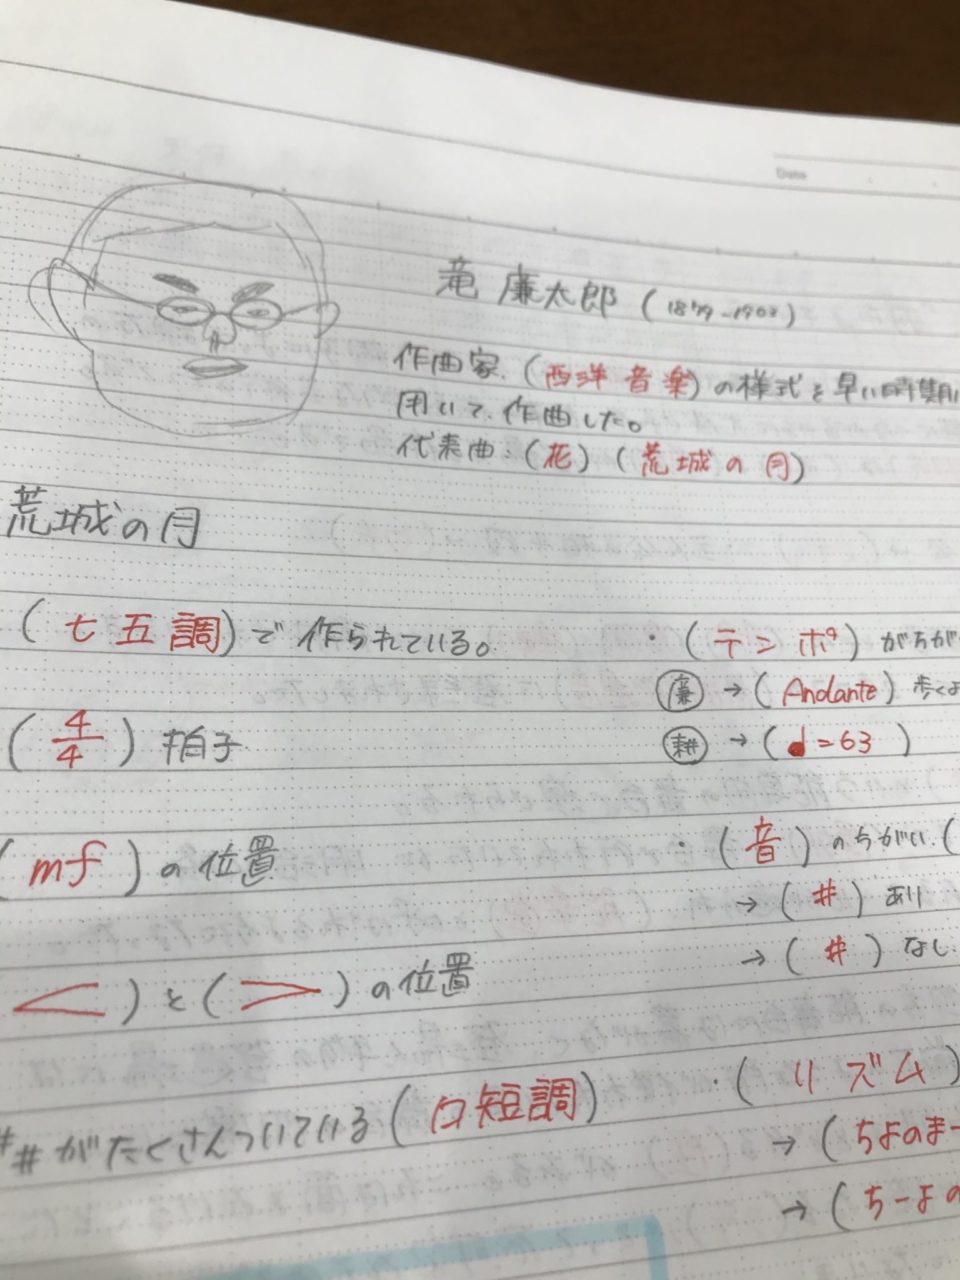 Date
滝 廉太郎 (1879-1903)
作曲家. (西洋 音楽) の様式を早い時期に
用いて、作曲した。
代表曲: (花) (荒城の月)
荒城の月
(七五調)で作られている。
(4/4) 拍子
(mf)の位置
< ) と ( > ) の位置
##がたくさんついている(ロ短調)
・(テンポ)がちが
廉 → (Andante) 歩くよ
耕 → (♩=63)
・(音)のちがい. (
→ (#) あり
→ (#) なし
・(リズム)
→ (ちよのまー
→ (ちーよの